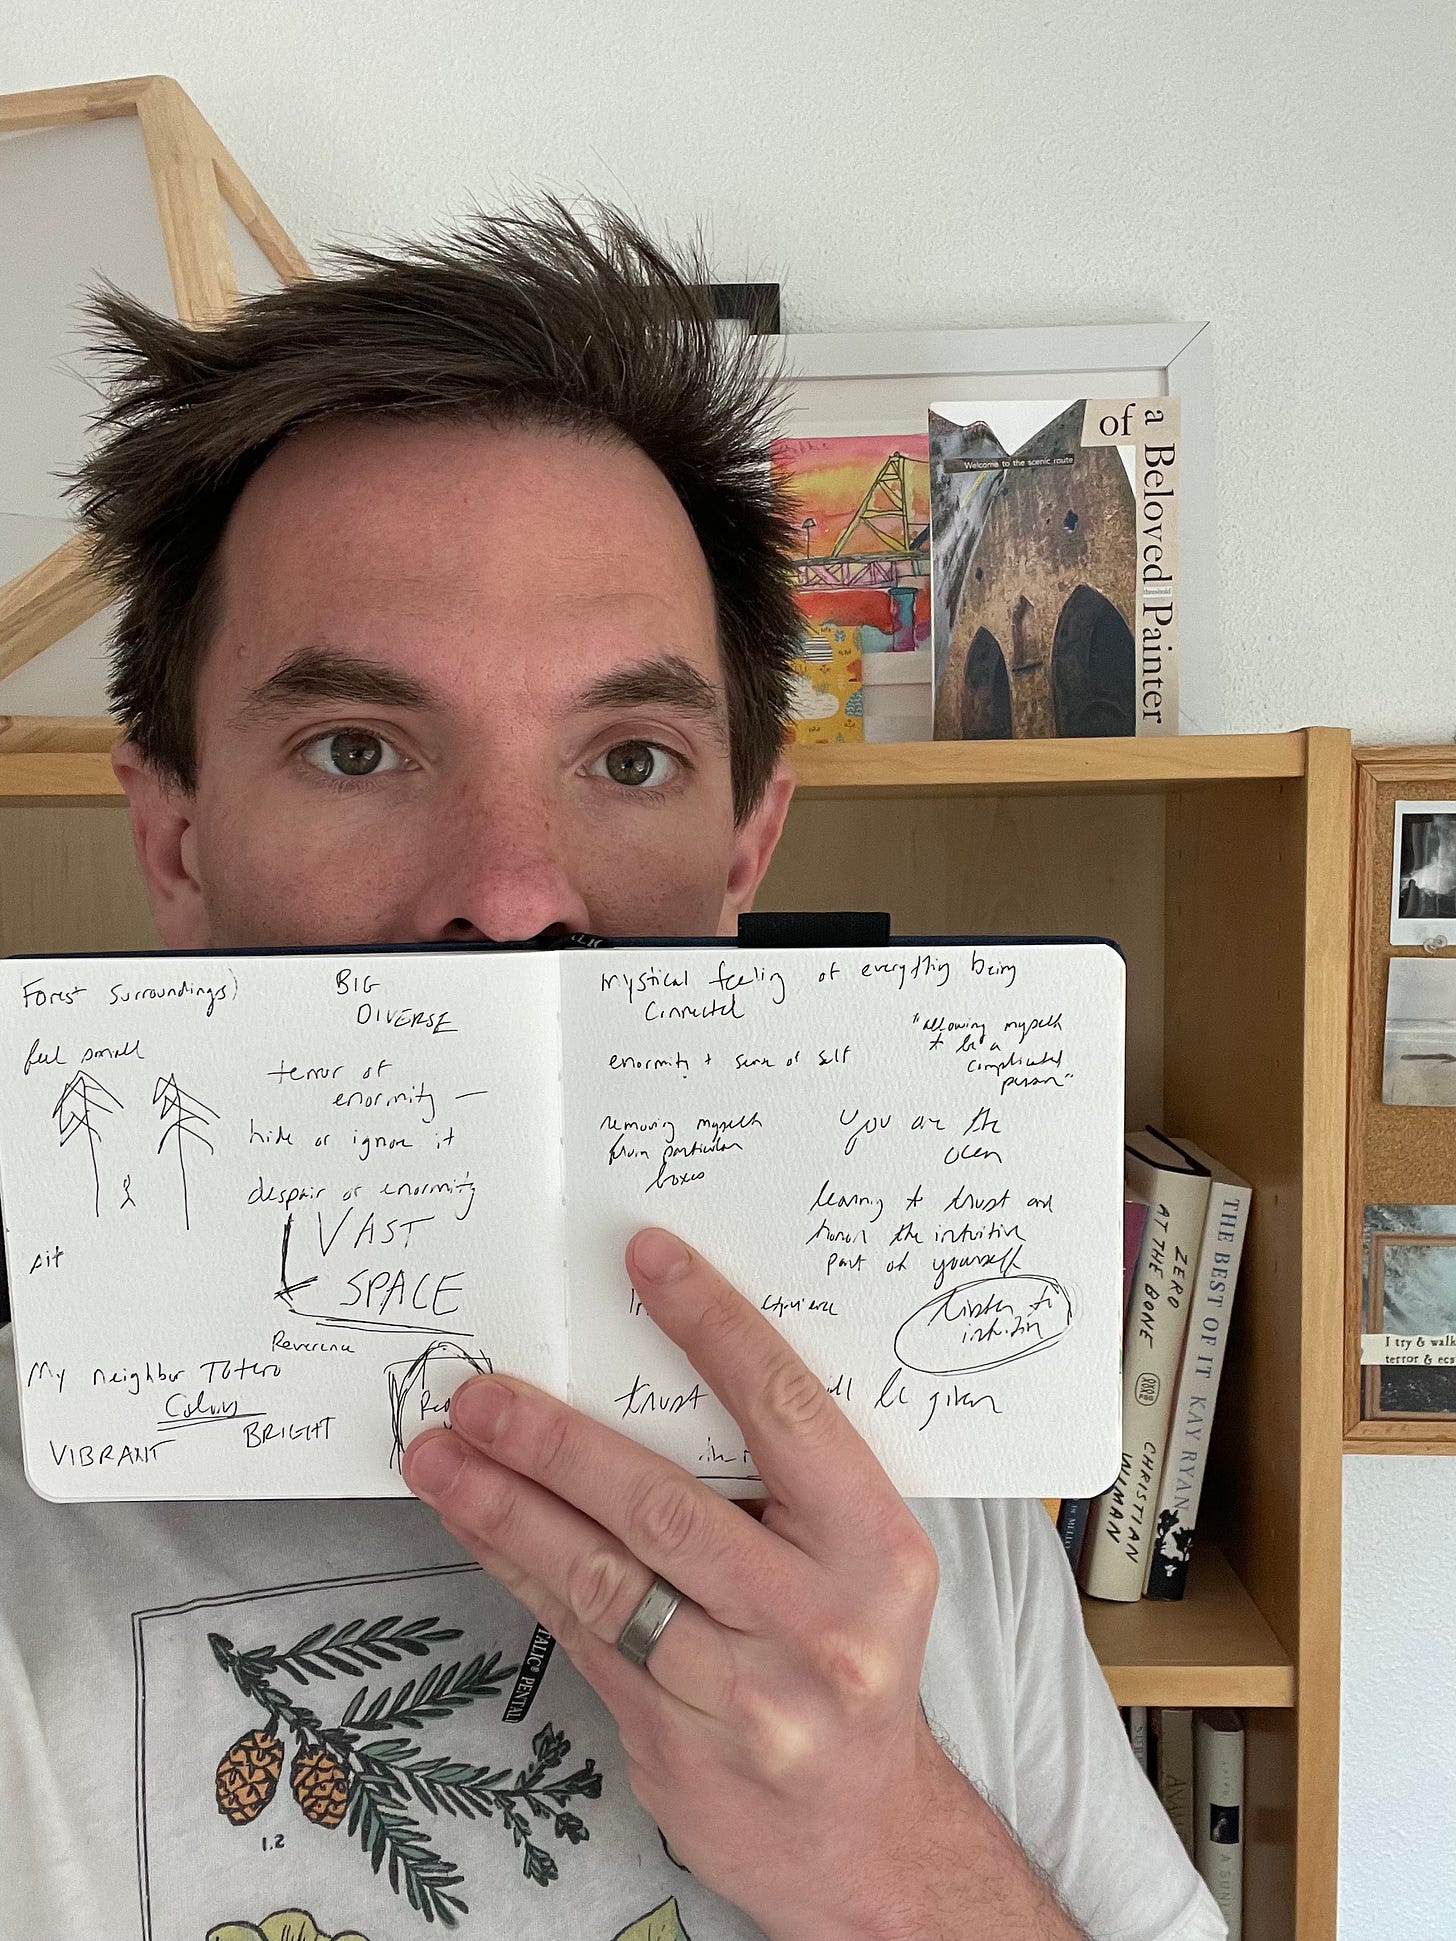 Forest surroundings)
BIG
DIVERSE
feel small
terror of
enormity —
hide or ignore it
despair of enormity
VAST
SPACE
sit
Reverence
My neighbor Totoro
Colors
BRIGHT
VIBRANT
mystical feeling of everything being
connected
"allowing myself
to be a
complicated
person"
enormity + sense of self
removing myself
from particular
boxes
you are the
ocean
learning to trust and
honor the intuitive
part of yourself
experience
listen to
intuition
trust
will be given
Welcome to the scenic route
of
a Beloved Painter
threshold
ZERO
AT THE BONE
CHRISTIAN
WIMAN
THE BEST OF IT KAY RYAN
I try & walk
terror & ecs
1.2